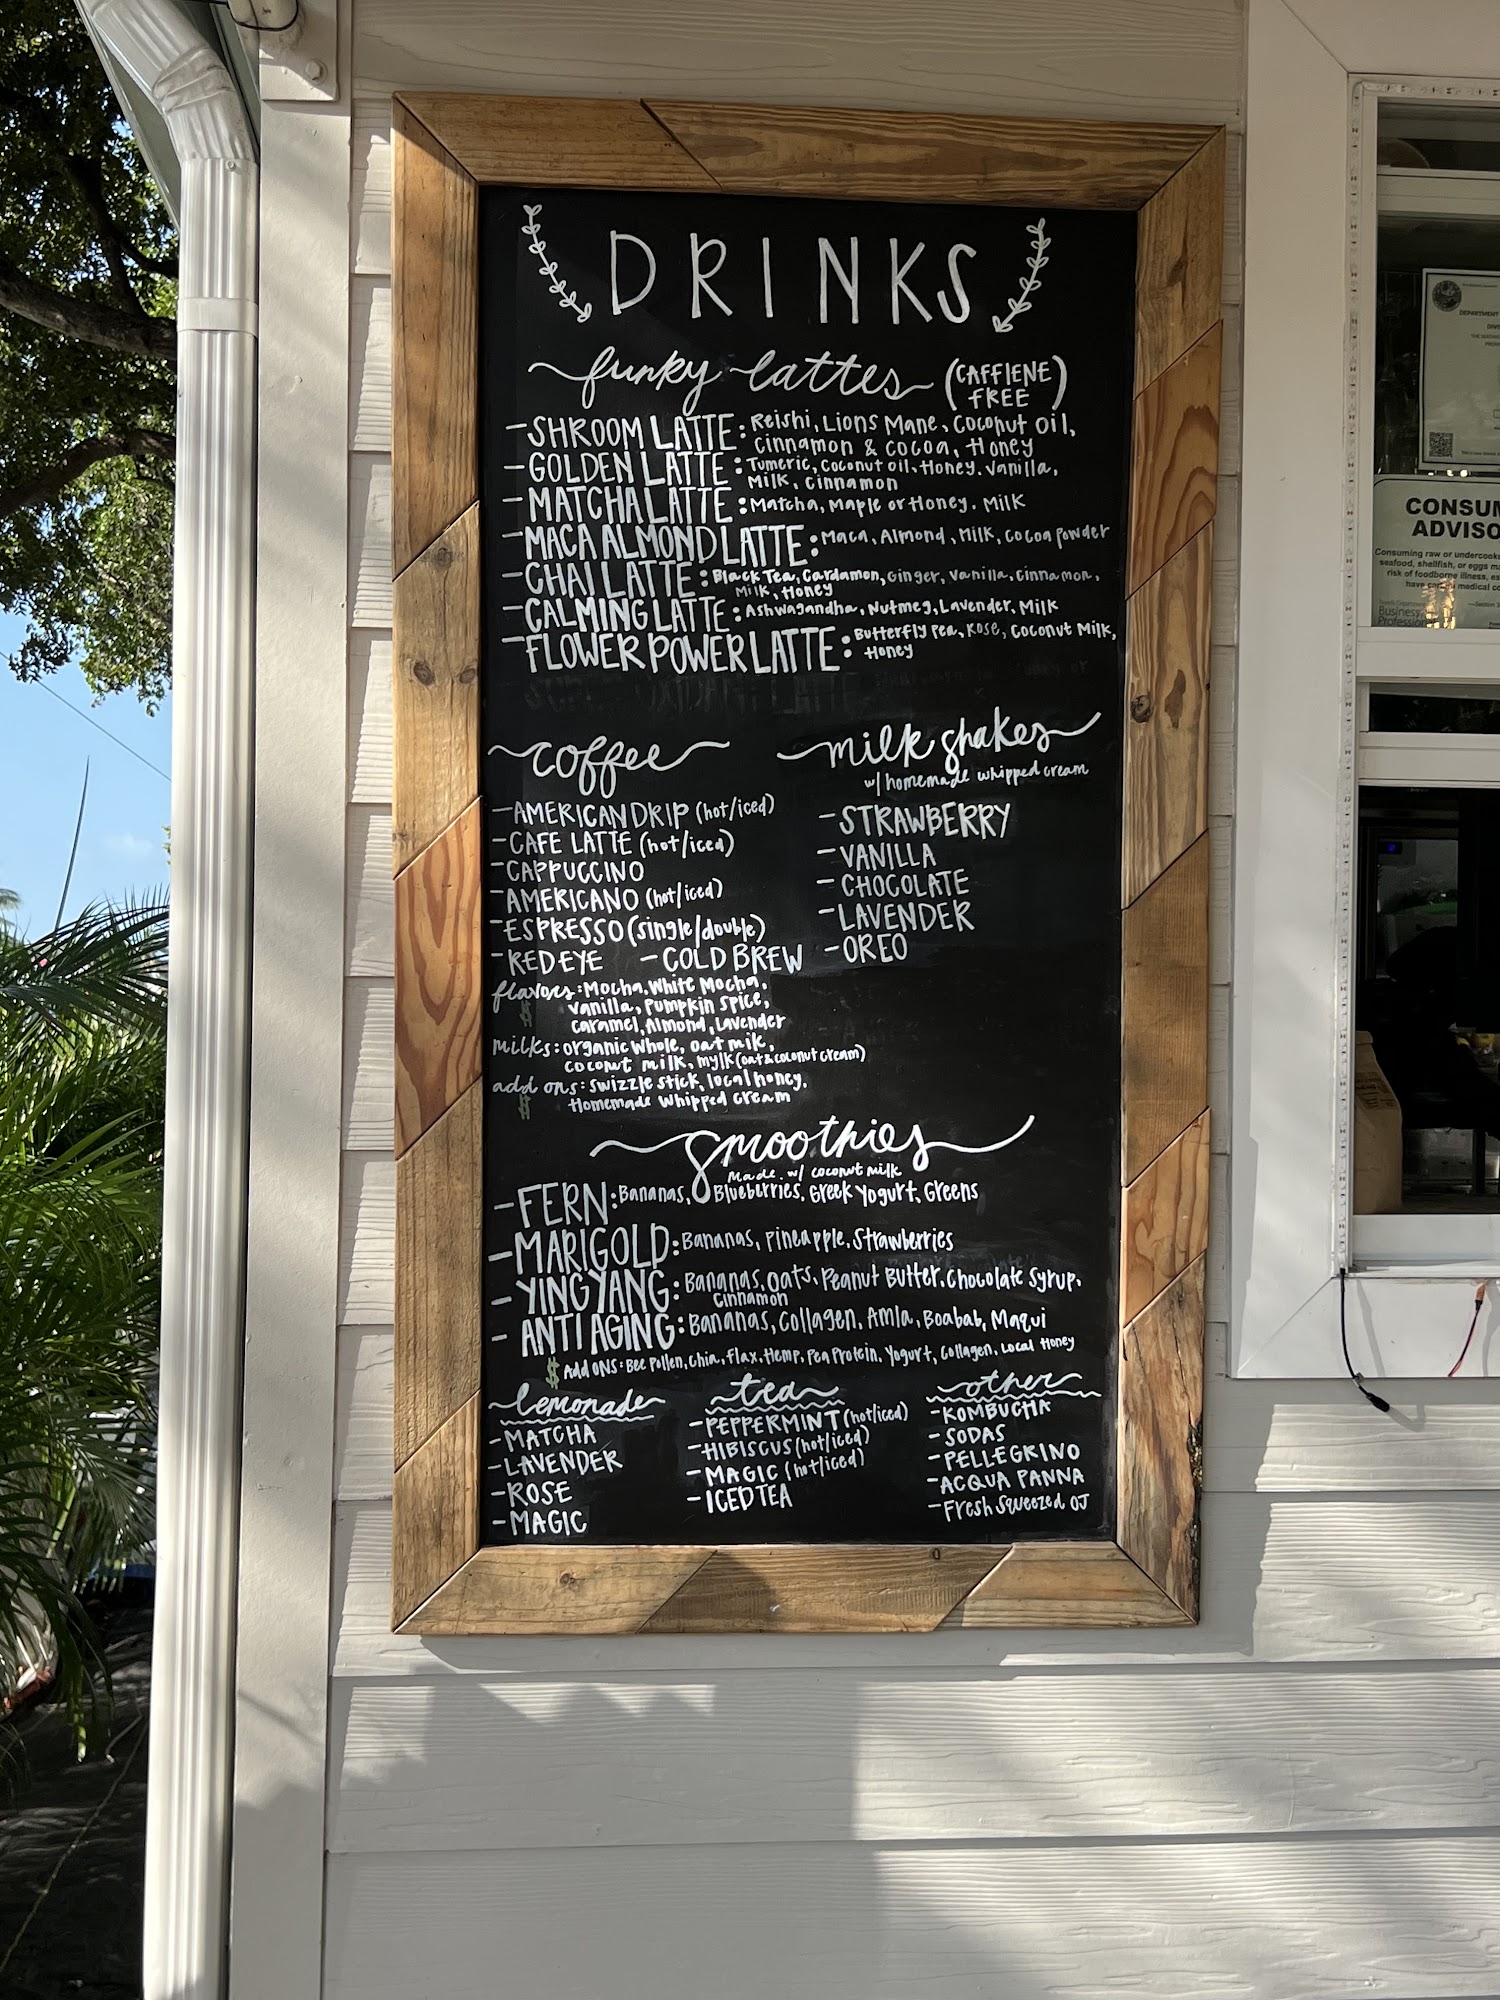 DRINKS
funky lattes (CAFFIENE FREE)
- SHROOM LATTE: Reishi, Lions Mane, Coconut oil,
cinnamon & cocoa, Honey
- GOLDEN LATTE: Tumeric, Coconut oil, Honey, Vanilla,
Milk, Cinnamon
- MATCHA LATTE: Matcha, Maple or Honey, Milk
- MACA ALMOND LATTE: Maca, Almond, Milk, Cocoa powder
- CHAI LATTE: Black Tea, Cardamon, Ginger, Vanilla, Cinnamon,
Milk, Honey
- CALMING LATTE: Ashwagandha, Nutmeg, Lavender, Milk
- FLOWER POWER LATTE: Butterfly Pea, Rose, Coconut Milk,
Honey
coffee
- AMERICAN DRIP (hot/iced)
- CAFE LATTE (hot/iced)
- CAPPUCCINO
- AMERICANO (hot/iced)
- ESPRESSO (single/double)
- RED EYE - COLD BREW
flavors: Mocha, White Mocha,
$ Vanilla, Pumpkin Spice,
caramel, Almond, Lavender
milks: organic whole, oat milk,
coconut milk, mylk (oat & coconut cream)
add ons: swizzle stick, local honey,
$ Homemade Whipped Cream
milk shakes
w/ homemade whipped cream
- STRAWBERRY
- VANILLA
- CHOCOLATE
- LAVENDER
- OREO
Smoothies
Made w/ coconut milk
- FERN: Bananas, Blueberries, Greek Yogurt, Greens
- MARIGOLD: Bananas, Pineapple, Strawberries
- YING YANG: Bananas, oats, Peanut Butter, Chocolate Syrup,
Cinnamon
- ANTI AGING: Bananas, Collagen, Amla, Boabab, Maqui
$ Add ONS: Bee Pollen, Chia, Flax, Hemp, Pea Protein, Yogurt, Collagen, Local Honey
lemonade
- MATCHA
- LAVENDER
- ROSE
- MAGIC
tea
- PEPPERMINT (hot/iced)
- HIBISCUS (hot/iced)
- MAGIC (hot/iced)
- ICED TEA
other
- KOMBUCHA
- SODAS
- PELLEGRINO
- ACQUA PANNA
- Fresh Squeezed OJ
DEPARTMENT
CONSUM
ADVISO
Consuming raw or undercook
seafood, shellfish, or eggs
risk of foodborne illness,
medical
Business